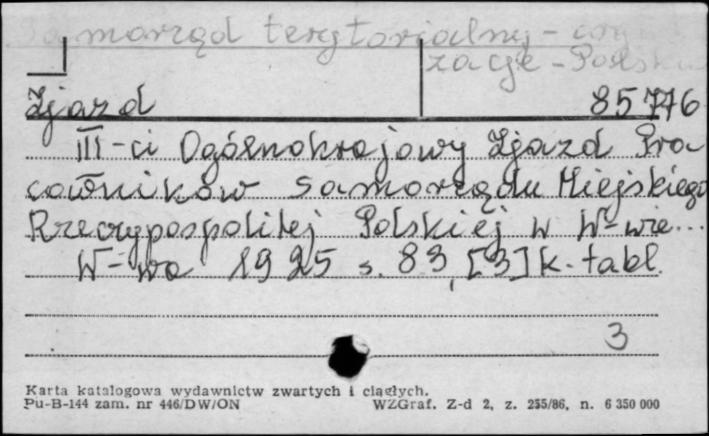 Samorząd terytorialny -
zacje - Polska
Zjazd 85776
III-ci Ogólnokrajowy Zjazd Pra
cowników Samorządu Miejskiego
Rzeczypospolitej Polskiej w W-wie...
W-wa 1925 s. 83, [3] k. tabl.
3
Karta katalogowa wydawnictw zwartych i ciągłych.
Pu-B-144 zam. nr 446/DW/ON WZGraf. Z-d 2, z. 255/86, n. 6 350 000